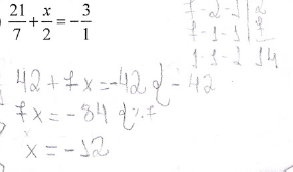 ) 21/7 + x/2 = - 3/1
7-2-1 | 2
7-1-1 | 7
1-1-1 14
42 + 7x = -42 { - 42
7x = -84 { :7
x = -12